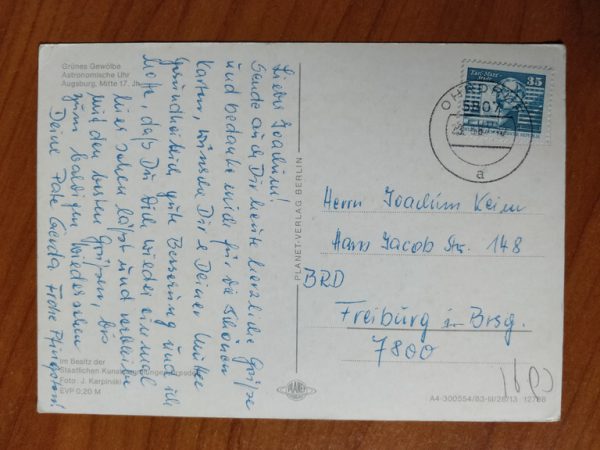 Grünes Gewölbe
Astronomische Uhr
Augsburg, Mitte 17. Jh.
Lieber Joachim!
Sende auch Dir heute herzliche Grüße
und bedanke mich für die schönen
Karten, wünsche Dir u. Deiner Mutter
gesundheitlich gute Besserung und ich
hoffe, daß Du Dich wieder einmal
hier sehen läßt und verbleibe
mit den besten Grüßen, bis
zum baldigen Wiedersehen
Deine Pate Gerda. Frohe Pfingsten!
Im Besitz der
Staatlichen Kunstsammlungen Dresden
Foto: J. Karpinski
EVP 0,20 M
PLANET-VERLAG BERLIN
PLANET
Karl-Marx-
35
5807
a
Herrn Joachim Keim
Hans Jacob Str. 148
BRD
Freiburg in Brsg.
7800
A4-300554/83-III/26/13 12788